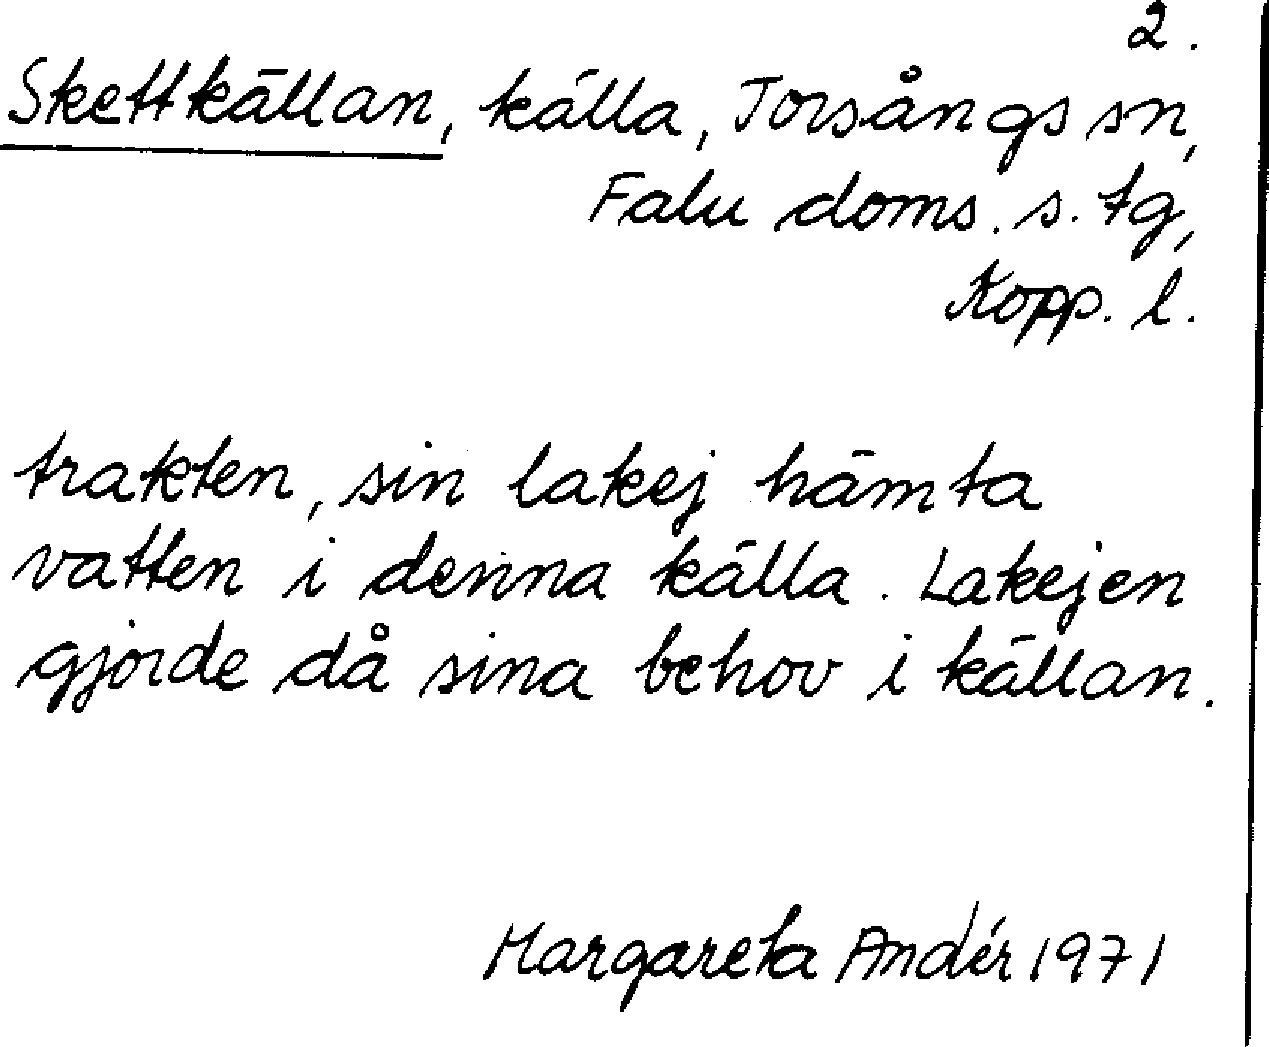 2.
Skettkällan, källa, Torsångs sn,
Falu doms. s. tg,
Kopp. l.
trakten, sin lakej hämta
vatten i denna källa. Lakejen
gjorde då sina behov i källan.
Margareta Andér 1971